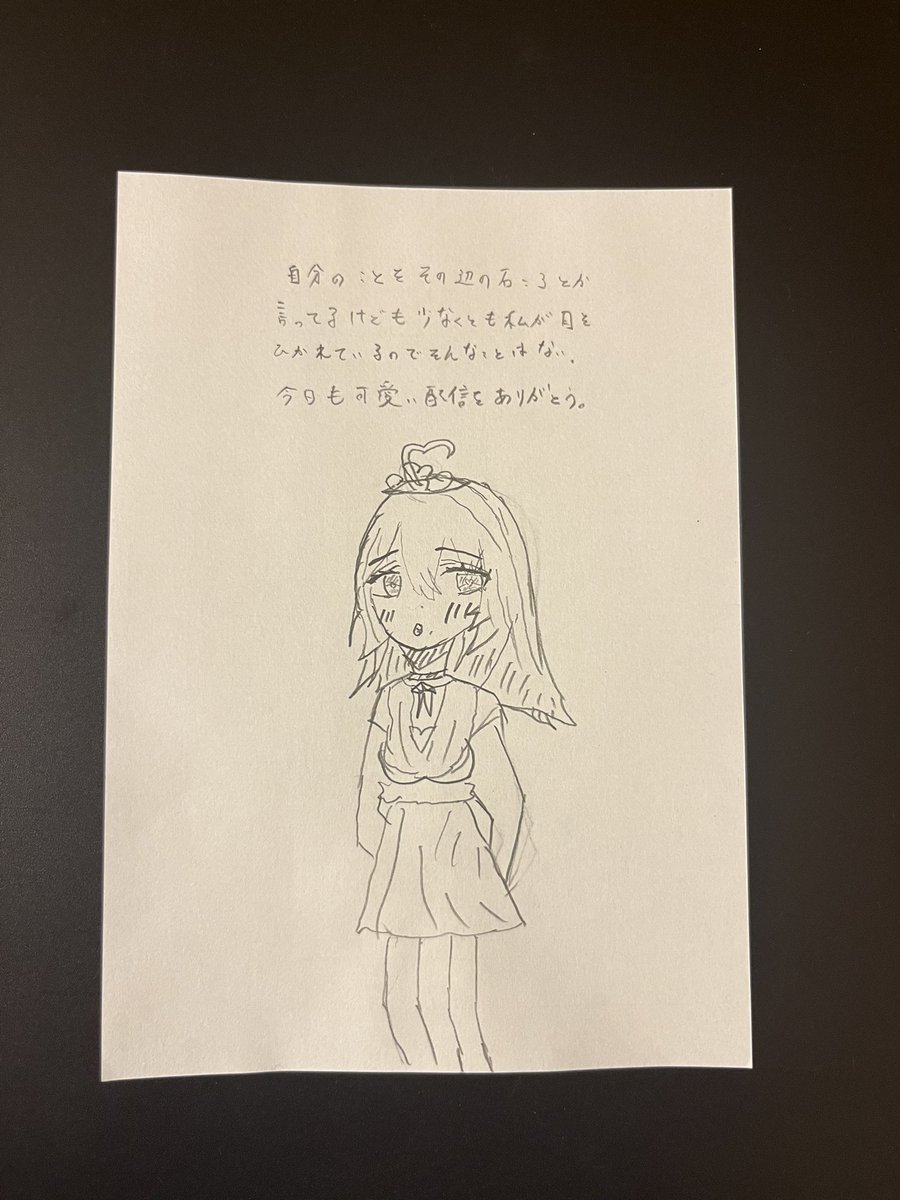 自分のことをその辺の石ころとか
言ってるけども少なくとも私が目を
ひかれているのでそんなことはない。
今日も可愛い配信をありがとう。